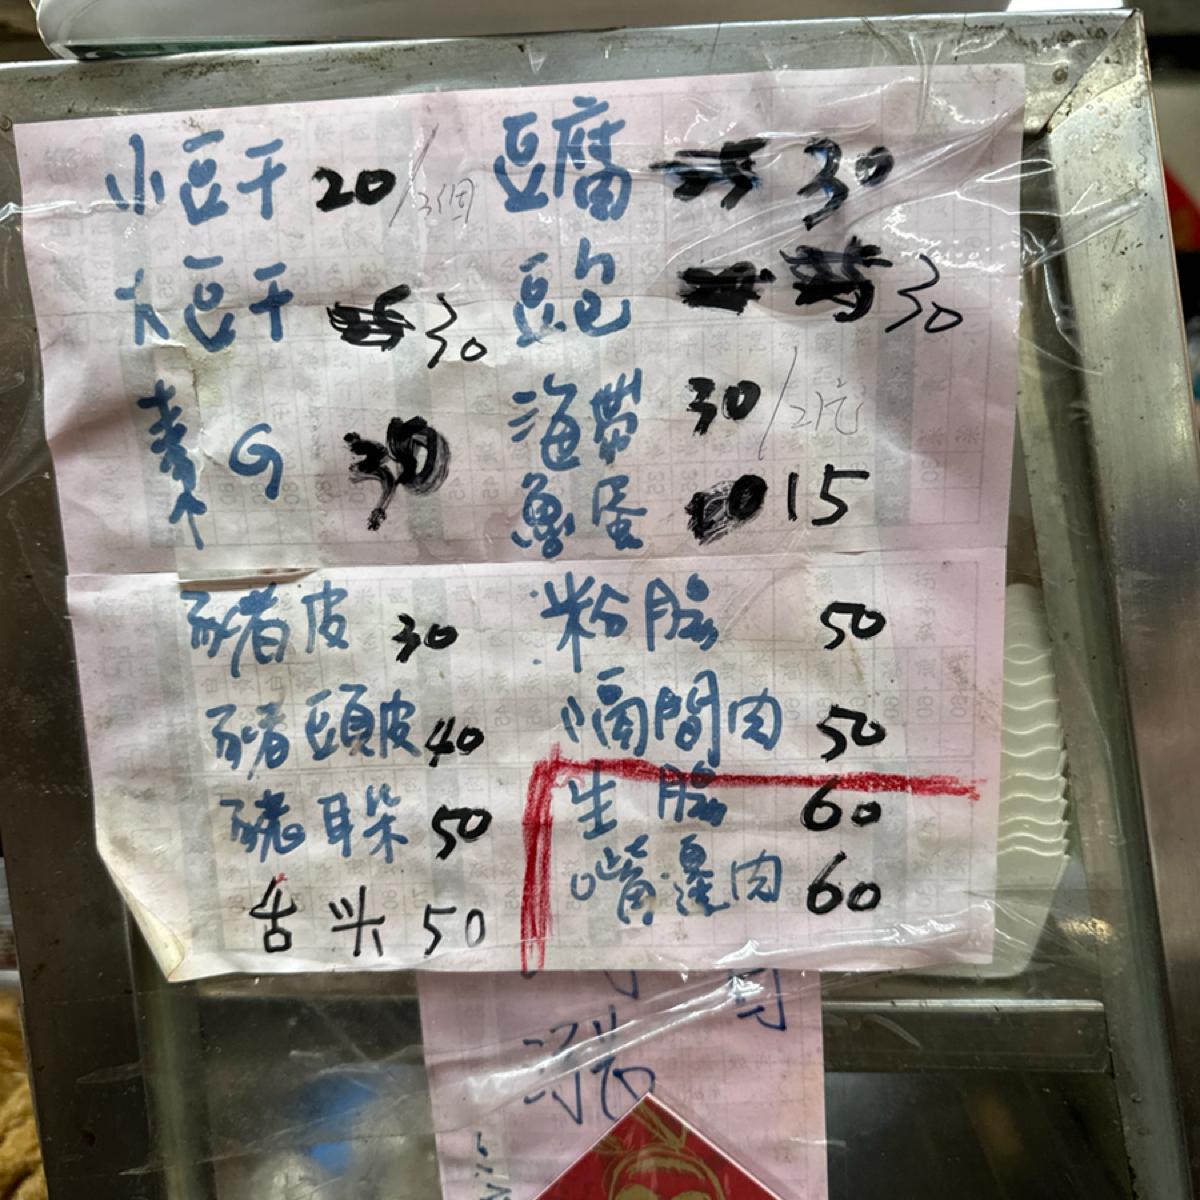 小豆干 20/3個
豆腐 30
大豆干 30
豆包 30
素G 30
海帶 30/2元
魯蛋 10 15
豬皮 30
粉腸 50
豬頭皮 40
隔間肉 50
豬耳朵 50
生腸 60
舌头 50
嘴邊肉 60